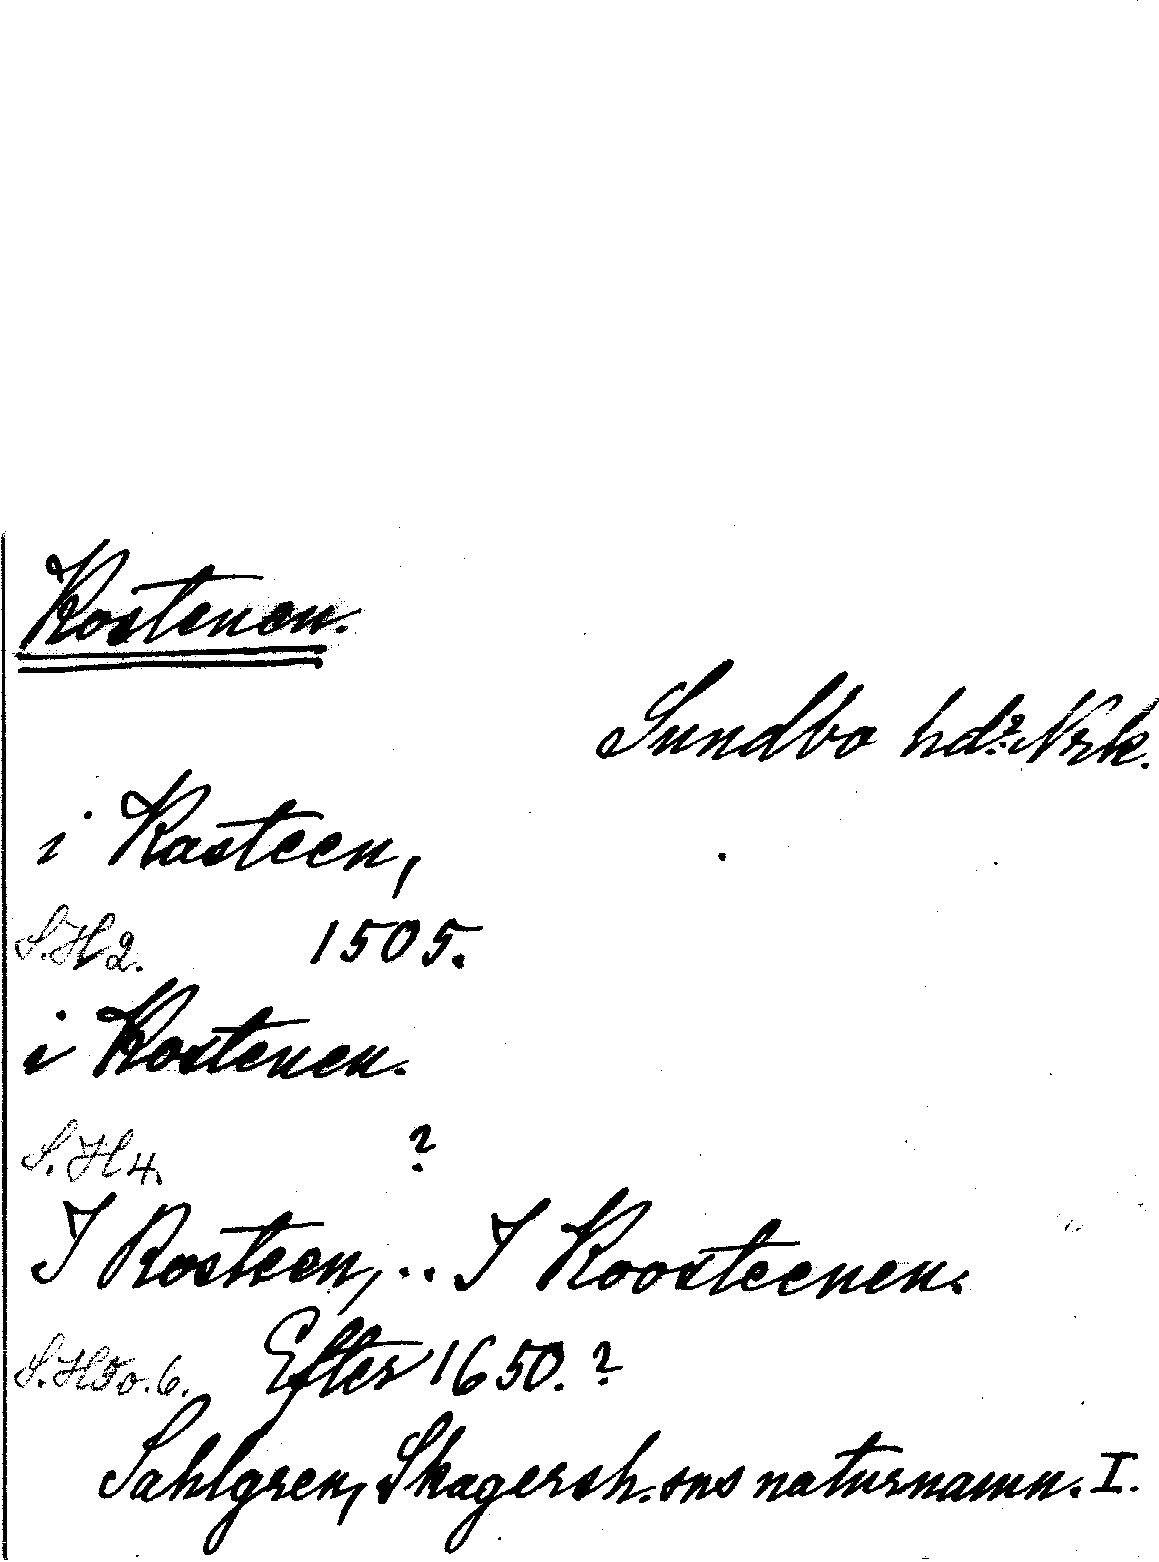 Kostenen.
Sundbo hd: Nrk.
i Kasteen,
S.H 2. 1505.
i Kostenen.
S.H 4. ?
I Kosteen, .. I Koosteenen.
S.H 5 o. 6. Efter 1650. ?
Sahlgren, Skagersh. sns naturnamn. I.